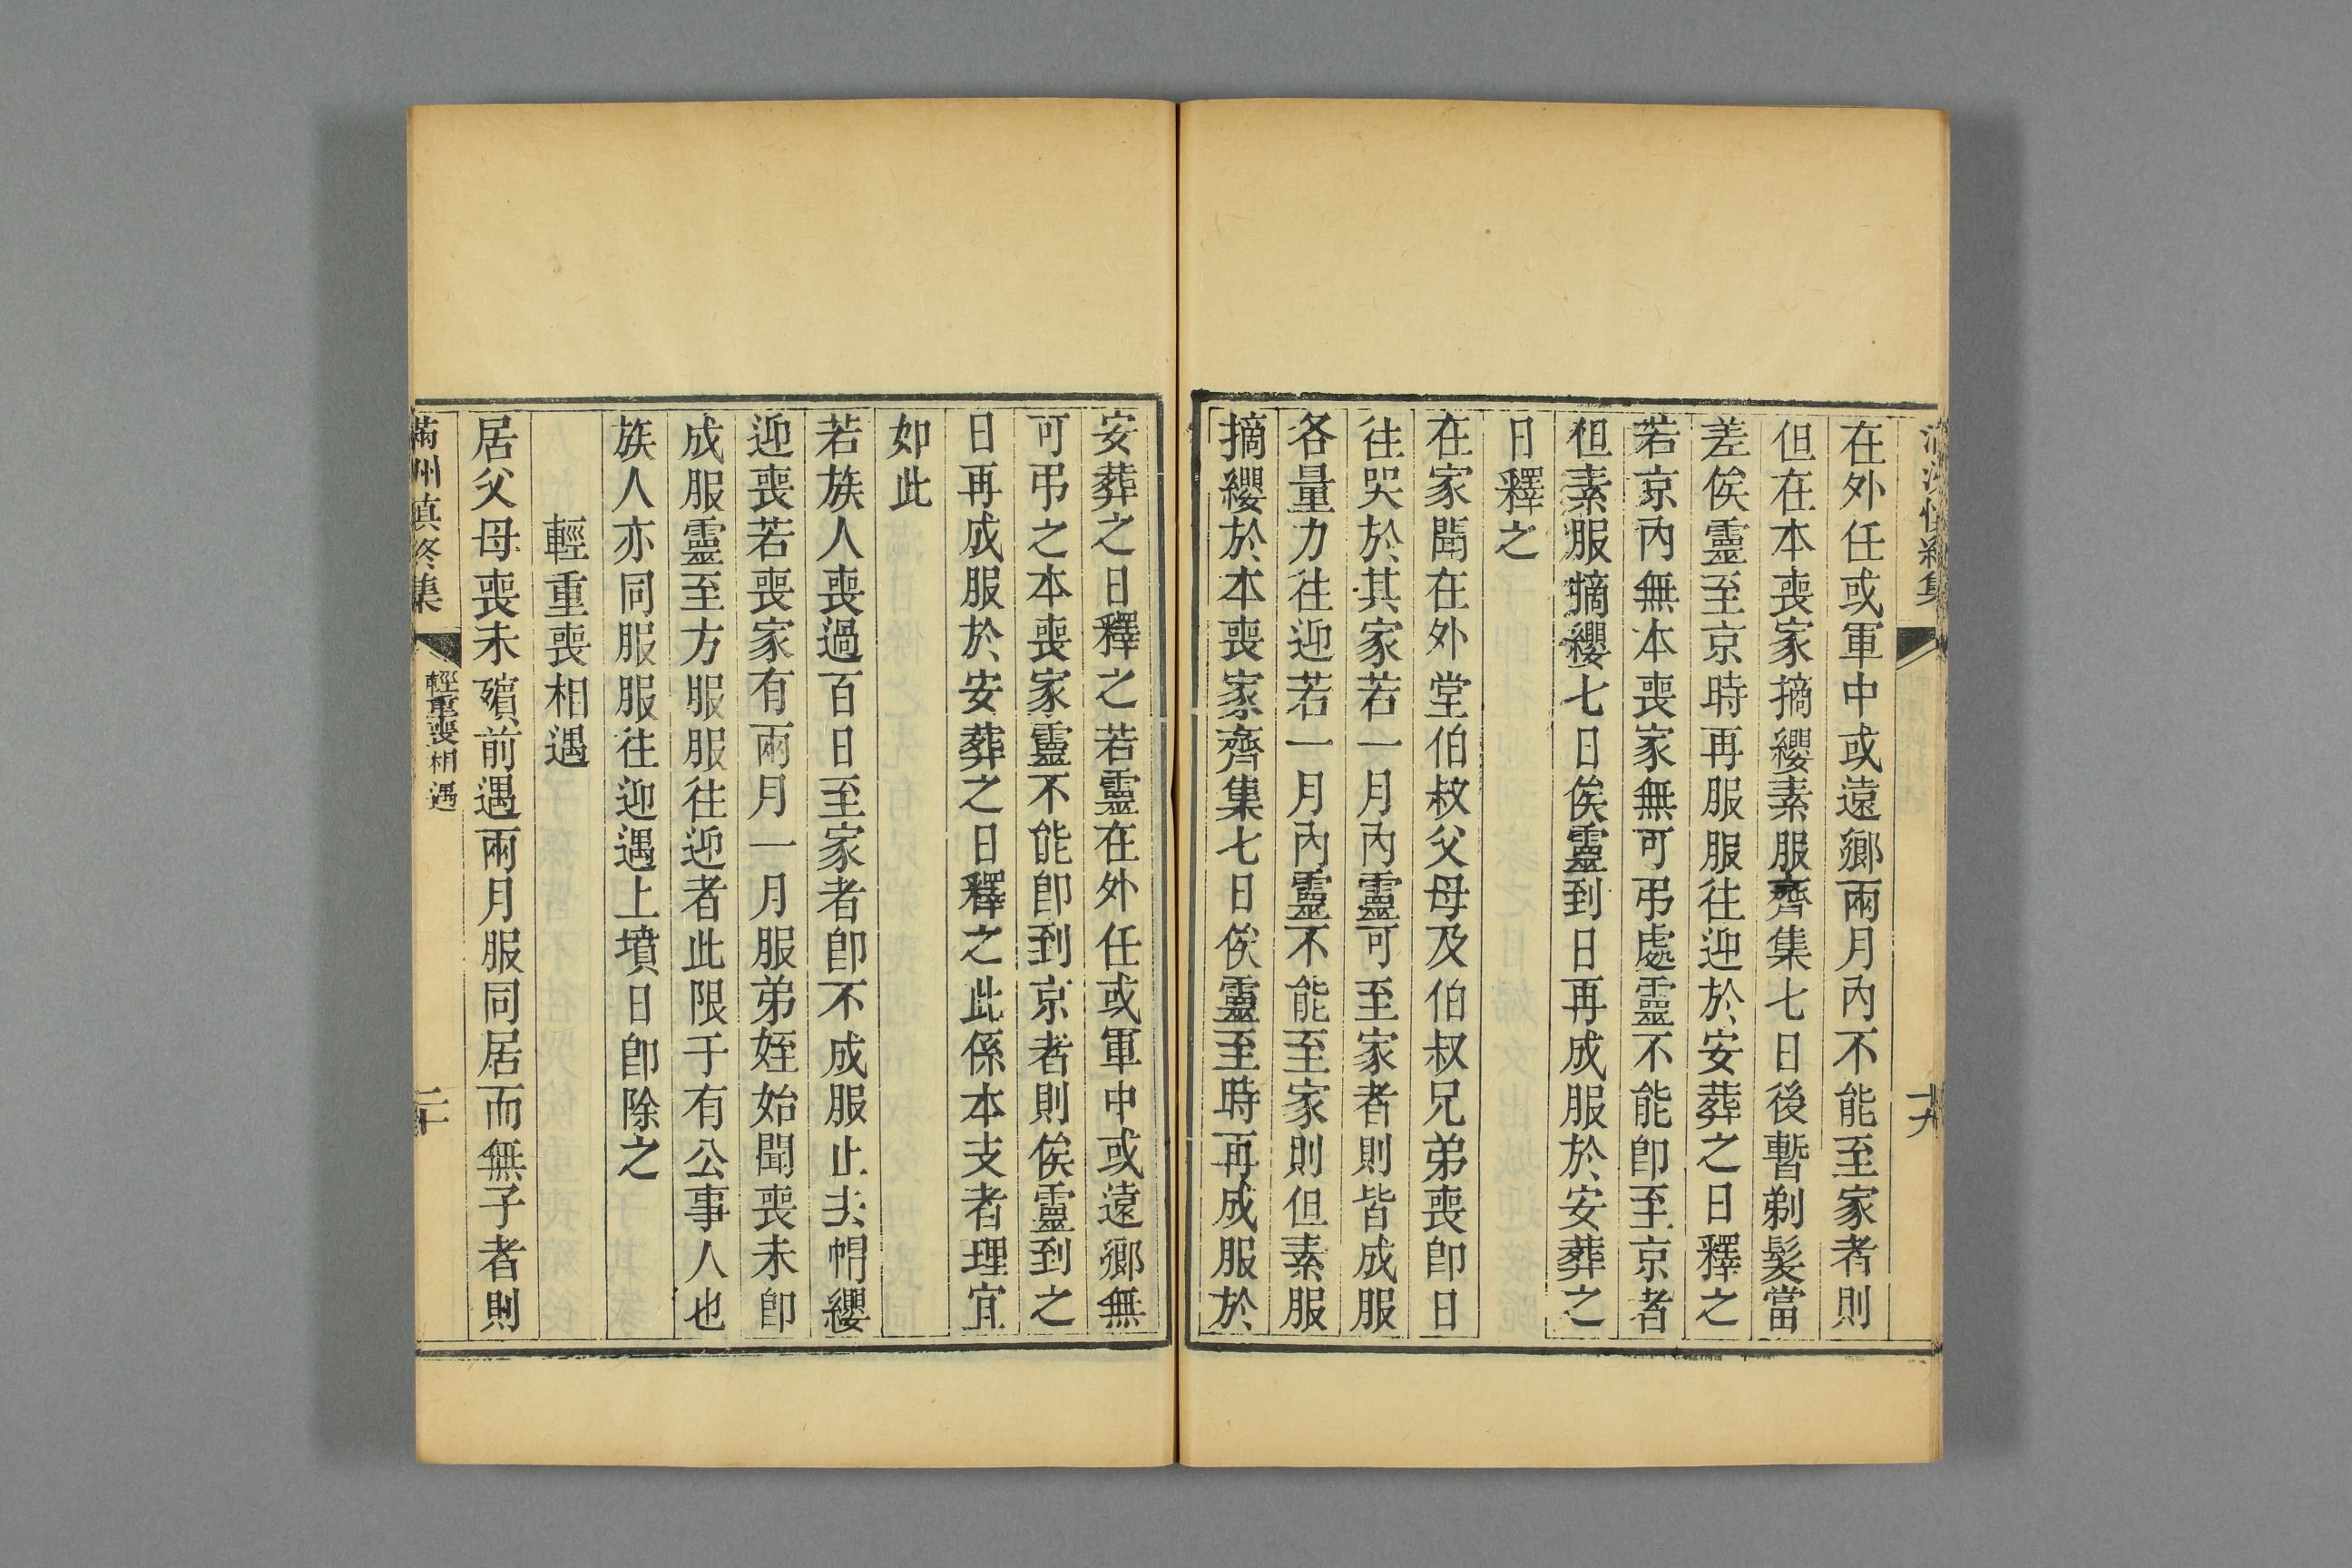 十九
在外任或軍中或遠鄉兩月內不能至家者則
但在本喪家摘纓素服齊集七日後暫剃髮當
差俟靈至京時再服服往迎於安葬之日釋之
若京內無本喪家無可弔處靈不能卽至京者
但素服摘纓七日俟靈到日再成服於安葬之
日釋之
在家聞在外堂伯叔父母及伯叔兄弟喪卽日
往哭於其家若一月內靈可至家者則皆成服
各量力往迎若一月內靈不能至家則但素服
摘纓於本喪家齊集七日俟靈至時再成服於
安葬之日釋之若靈在外任或軍中或遠鄉無
可弔之本喪家靈不能卽到京者則俟靈到之
日再成服於安葬之日釋之此係本支者理宜
如此
若族人喪過百日至家者卽不成服止去帽纓
迎喪若喪家有兩月一月服弟姪始聞喪未卽
成服靈至方服服往迎者此限于有公事人也
族人亦同服服往迎遇上墳日卽除之
輕重喪相遇
居父母喪未殯前遇兩月服同居而無子者則
滿州慎終集
輕重喪相遇
二十